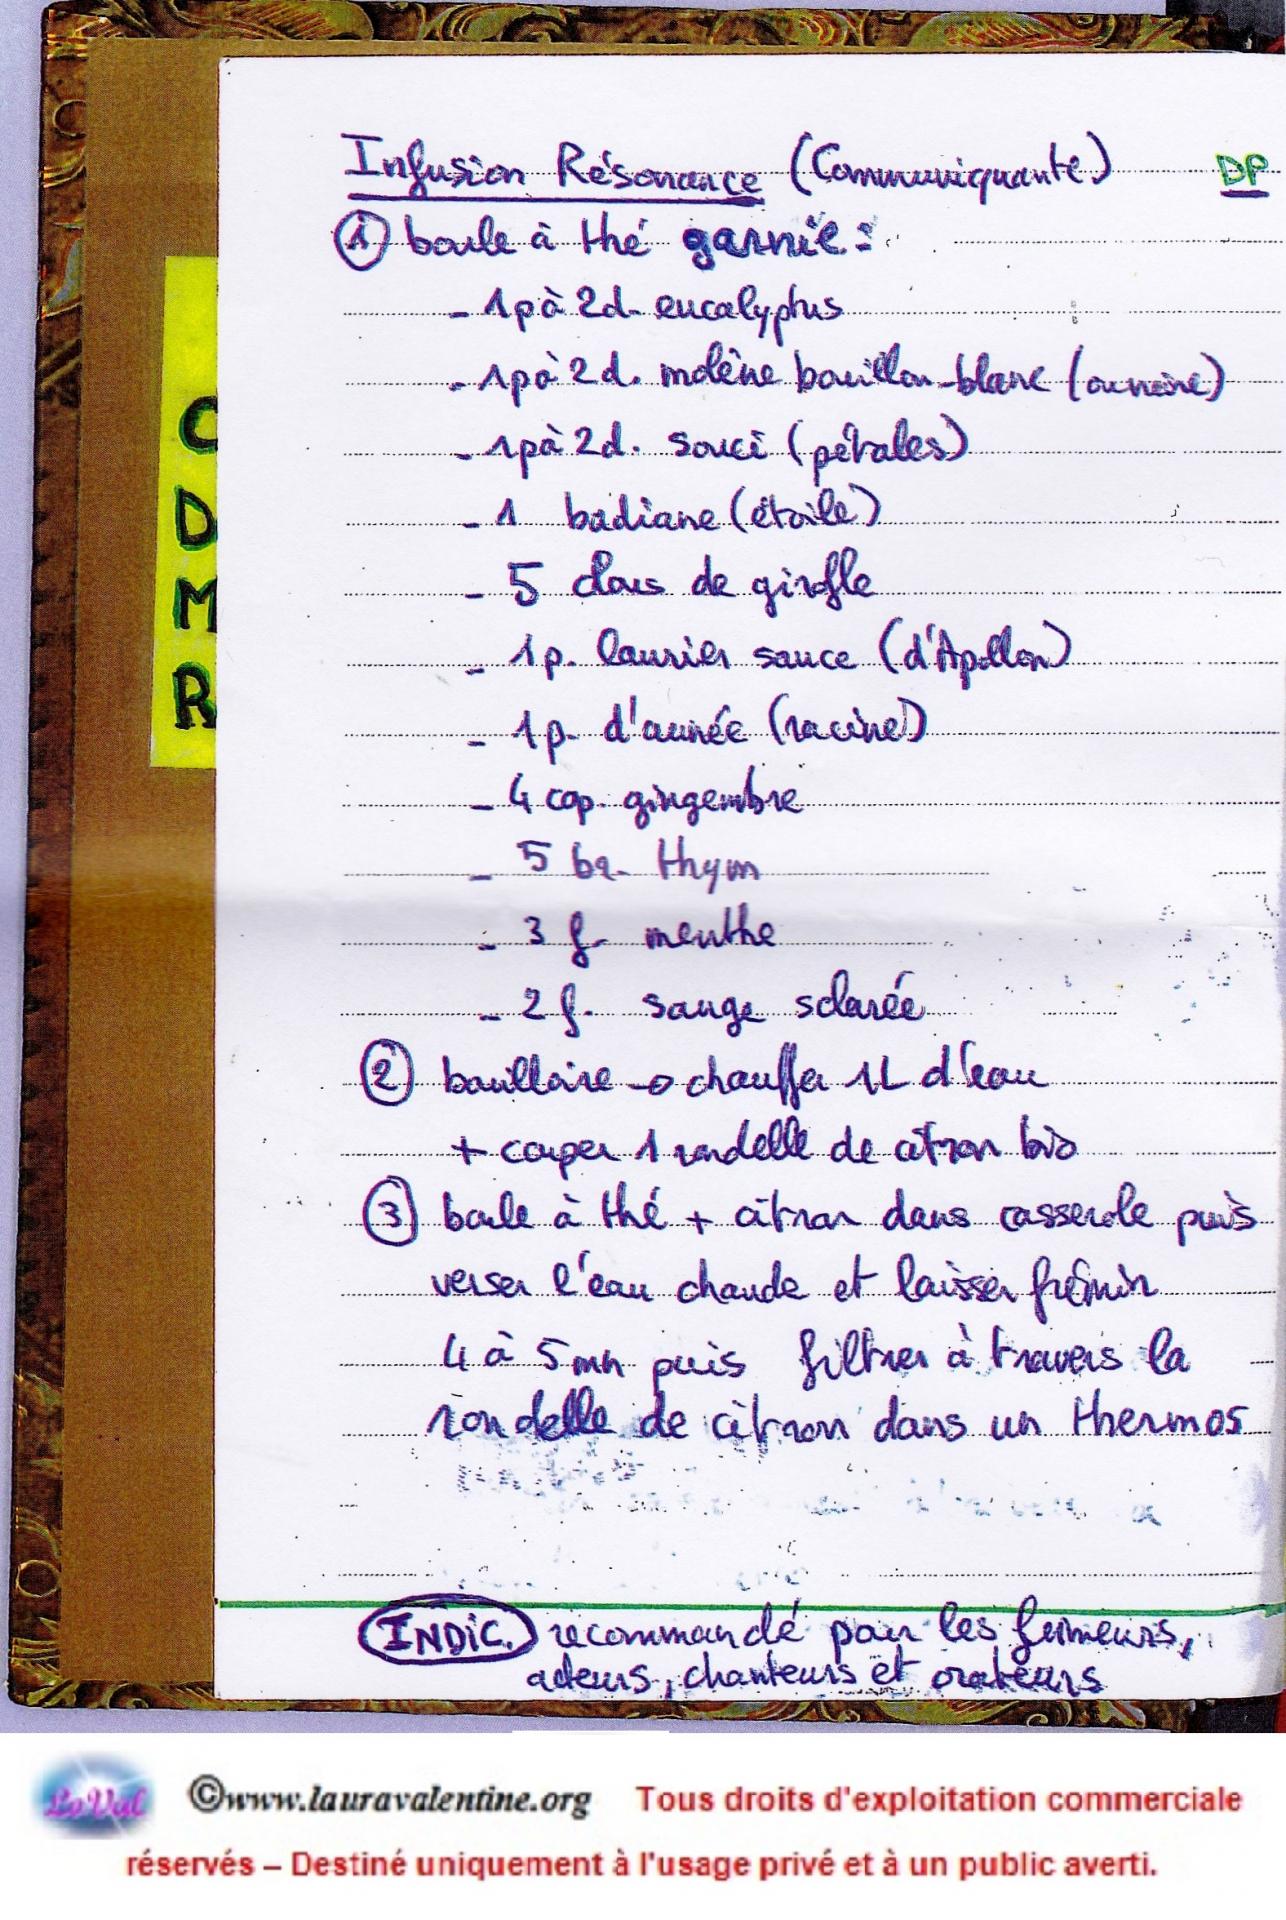 Infusion Résonance (Communiquante) DP
① boule à thé garnie :
- 1p à 2d. eucalyptus
- 1p à 2d. molène bouillon-blanc (ou noire)
- 1p à 2d. souci (pétales)
- 1 badiane (étoile)
- 5 clous de girofle
- 1p. laurier sauce (d'Apollon)
- 1p. d'aunée (racine)
- 4 cop. gingembre
- 5 br. thym
- 3 f. menthe
- 2 f. sauge sclarée
② bouilloire → chauffer 1L d'eau
+ couper 1 rondelle de citron bio
③ boule à thé + citron dans casserole puis
verser l'eau chaude et laisser frémir
4 à 5 mn puis filtrer à travers la
rondelle de citron dans un thermos
INDIC. recommandé pour les fumeurs,
acteurs, chanteurs et orateurs
C
D
M
R
LoVal ©www.lauravalentine.org Tous droits d'exploitation commerciale
réservés – Destiné uniquement à l'usage privé et à un public averti.